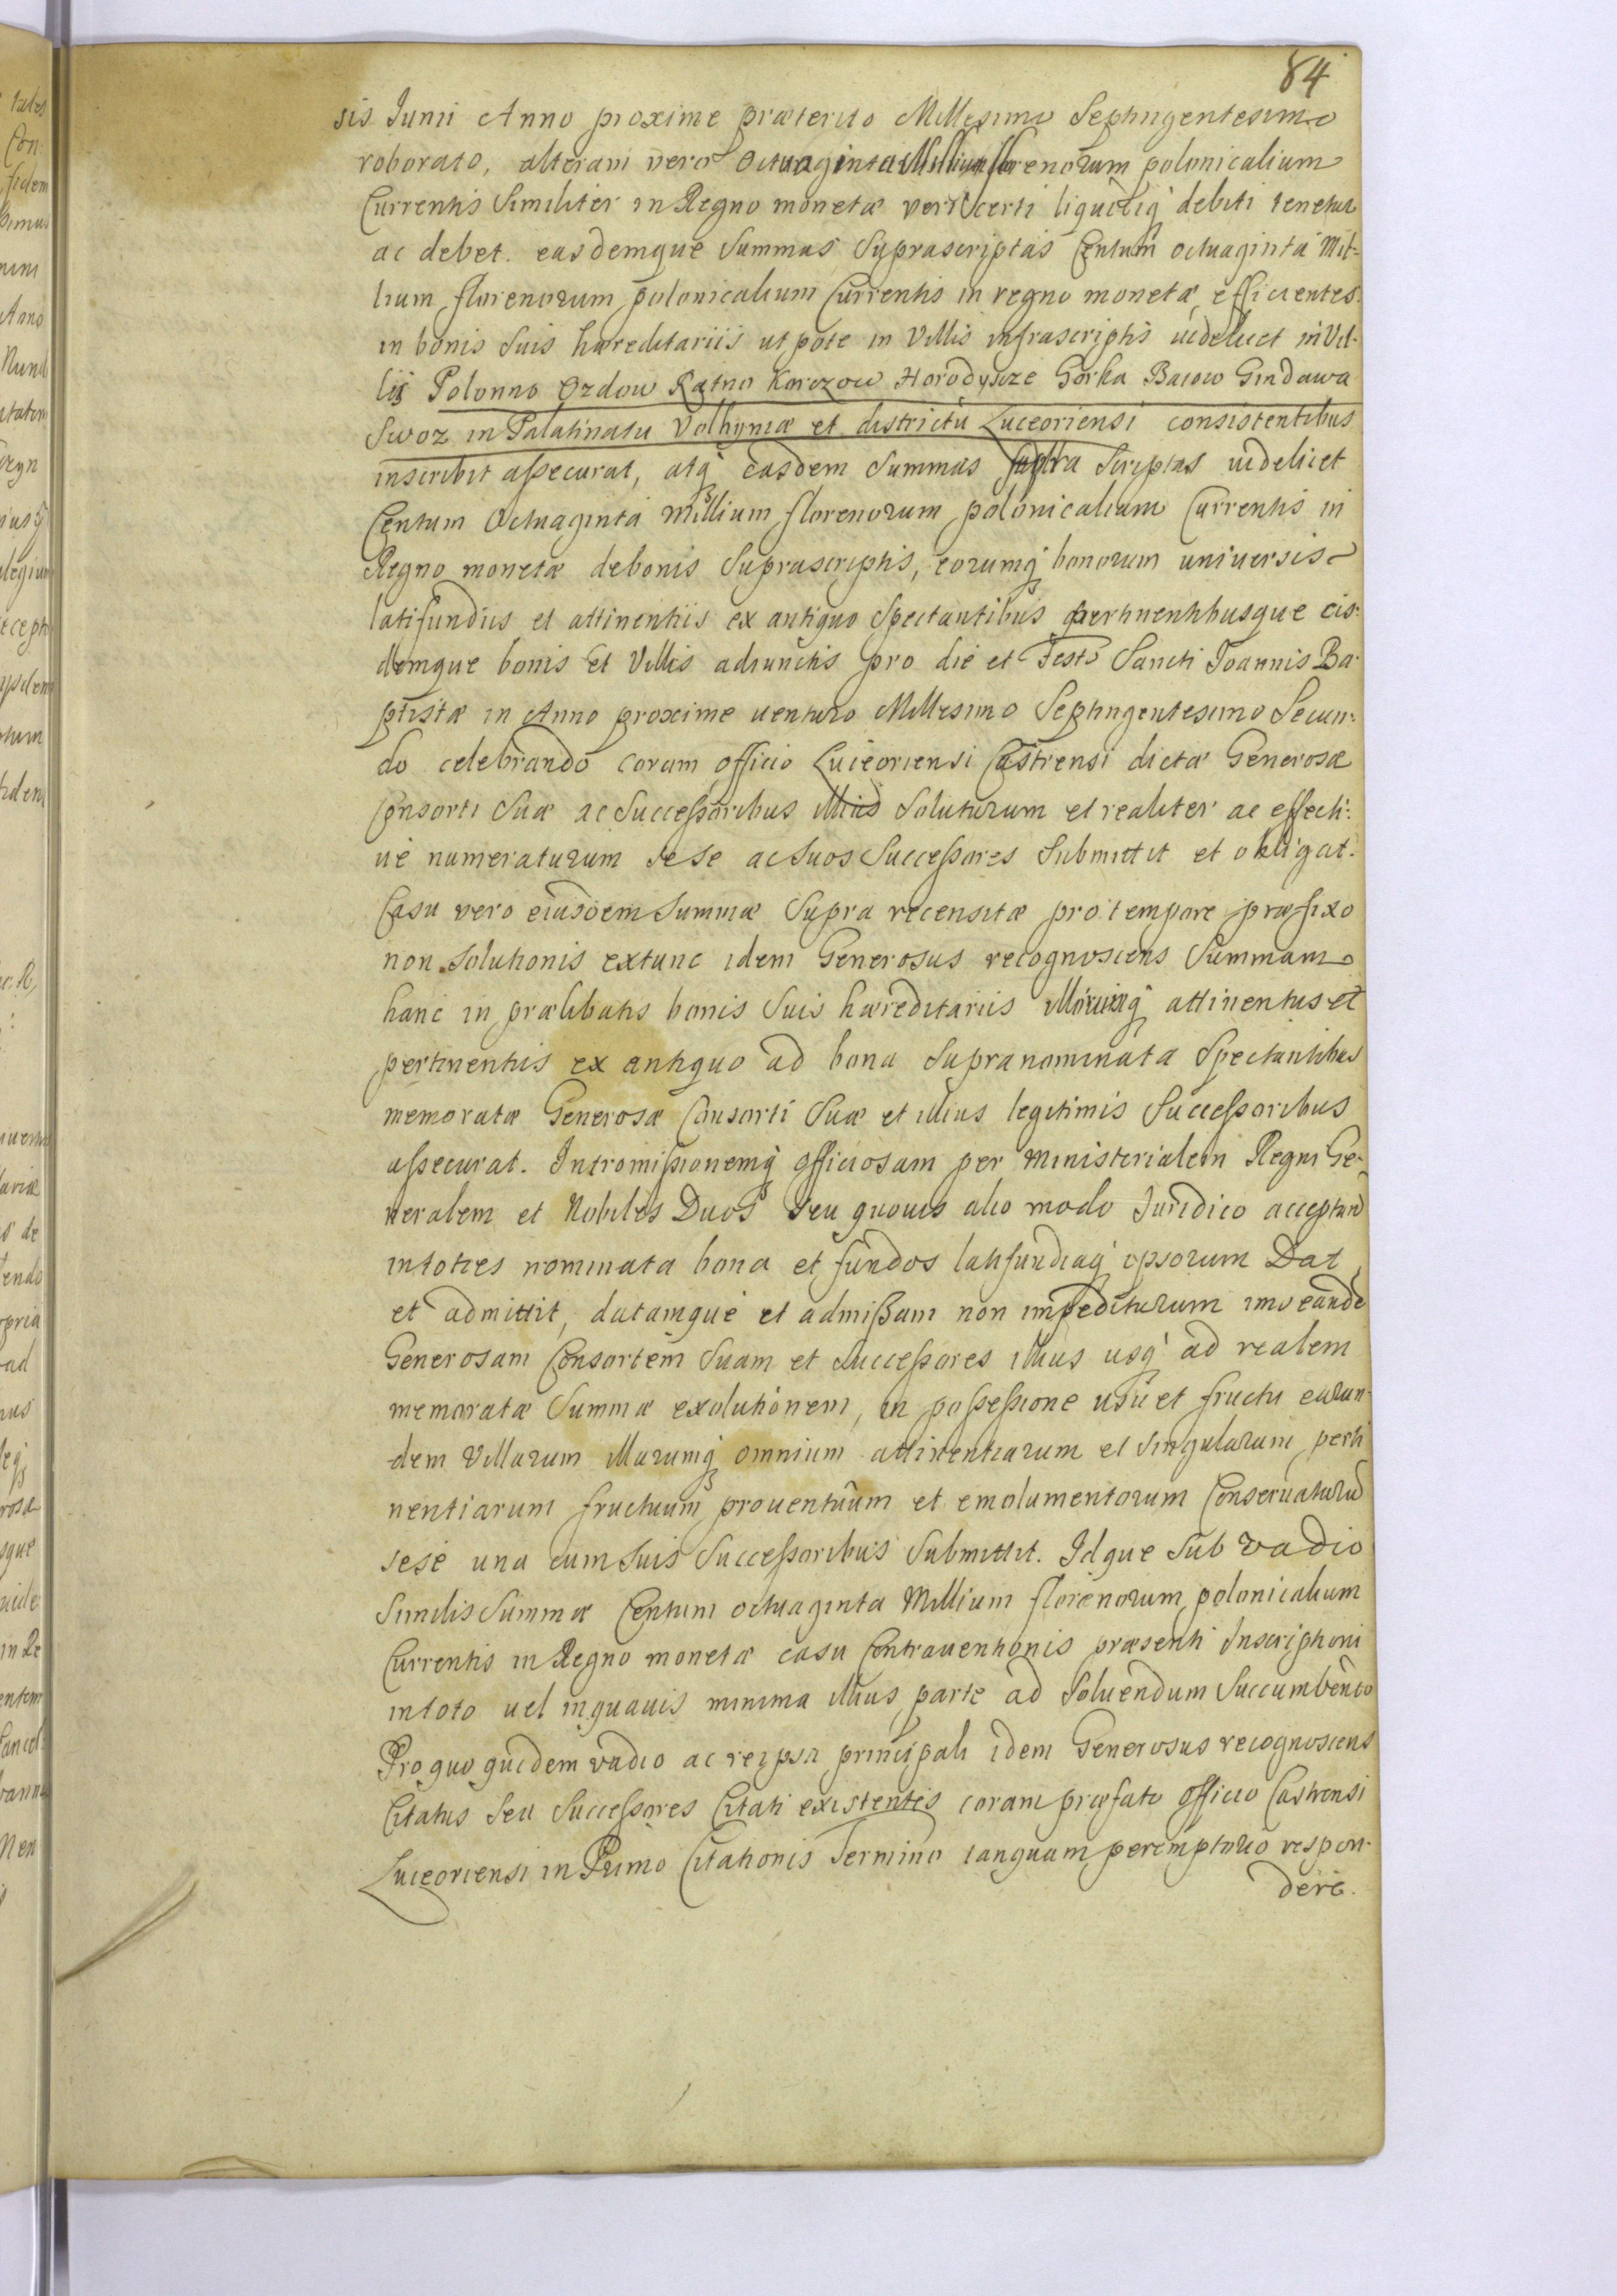 84
sis Junii Anno proxime præterito Millesimo Septingentesimo
roborato, alteram vero Octuaginta Millium florenorum polonicalium
Currentis Similiter in Regno monetæ veri certi liquidiq̃ debiti tenetur
ac debet. easdemque Summas Suprascriptas Centum octuaginta Mil-
lium florenorum polonicalium Currentis in regno monetæ efficientes.
in bonis Suis hæreditariis utpote in Villis infrascriptis videlicet in Vil-
lis Polonno Ozdow Ratno Karczow Horodyszcze Gorka Baiow Gindawa
Swoz in Palatinatu Volhyniæ et districtu Luceoriensi consistentibus
inscribit assecurat, atq̃ easdem Summas supra Scriptas videlicet
Centum Octuaginta Millium florenorum polonicalium Currentis in
Regno monetæ de bonis Suprascriptis, eorumq̃ bonorum universis
latifundiis et attinentiis ex antiquo Spectantibus pertinentibusque eis-
demque bonis et Villis adiunctis pro die et Festo Sancti Joannis Ba-
ptistæ in Anno proxime venturo Millesimo Septingentesimo Secun-
do celebrando coram officio Luceoriensi Castrensi dictæ Generosæ
Consorti Suæ ac Successoribus illius Soluturum et realiter ac effecti-
ve numeraturum sese ac Suos Successores Submittit et obligat.
Casu vero eiusdem Summæ Supra recensitæ pro tempore præfixo
non Solutionis extunc idem Generosus recognoscens Summam
hanc in prælibatis bonis Suis hæreditariis illorumq̃ attinentiis et
pertinentiis ex antiquo ad bona Supranominata Spectantibus
memoratæ Generosæ Consorti Suæ et illius legitimis Successoribus
assecurat. Intromissionemq̃ officiosam per Ministerialem Regni Ge-
neralem et Nobiles Duos seu quovis alio modo Juridico acceptand
in toties nominata bona et fundos latifundiaq̃ ipsorum Dat
et admittit, datamque et admissam non impediturum imo eande
Generosam Consortem Suam et Successores illius usq̃ ad realem
memoratæ Summæ exolutionem, in possessione usu et fructu earun-
dem Villarum illarumq̃ omnium attinentiarum et Singularum perti
nentiarum fructuum proventuum et emolumentorum Conservaturu
sese una cum Suis Successoribus Submittit. Idque Sub vadio
Similis Summæ Centum octuaginta Millium florenorum polonicalium
Currentis in Regno monetæ casu Contraventionis præsenti Inscriptioni
in toto vel in quavis minima illius parte ad Solvendum Succumbendo
Pro quo quidem vadio ac re ipsa principali idem Generosus recognoscens
Citatus Seu Successores Citati existentes coram præfato officio Castrensi
Luceoriensi in Primo Citationis Termino tanquam peremptorio respon-
dere.